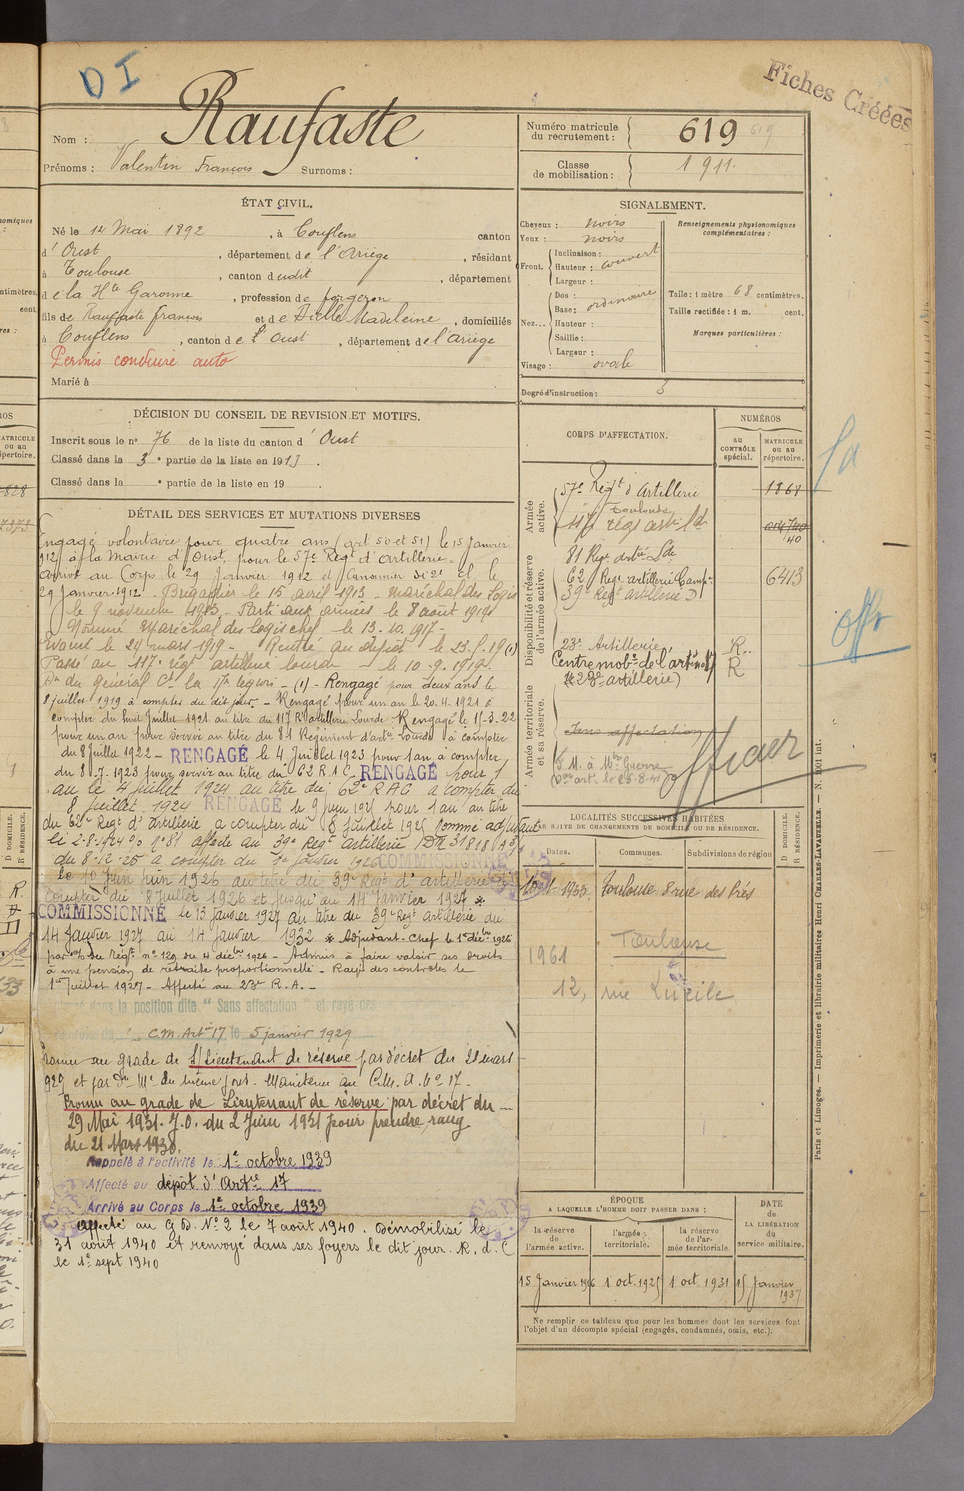 D I
Fiches Créées
Nom : Raufaste
Prénoms : Valentin François Surnoms :
Numéro matricule du recrutement : 619
Classe de mobilisation : 1911.
ÉTAT CIVIL.
Né le 14 Mai 1892, à Couflens canton
d' Oust, département de l'Ariège, résidant
à Toulouse, canton dudit, département
de la Hte Garonne, profession de forgeron
fils de Raufaste François et de Madeleine, domiciliés
à Couflens, canton de l'Oust, département de l'Ariège
Permis conduire auto
Marié à
SIGNALEMENT.
Cheveux : noirs
Yeux : noirs
Front. Inclinaison :
Hauteur : couvert
Largeur :
Nez... Dos :
Base : ordinaire
Hauteur :
Saillie :
Largeur :
Visage : ovale
Renseignements physionomiques complémentaires :
Taille : 1 mètre 68 centimètres.
Taille rectifiée : 1 m. cent.
Marques particulières :
Degré d'instruction : 3
DÉCISION DU CONSEIL DE REVISION ET MOTIFS.
Inscrit sous le n° 76 de la liste du canton d' Oust
Classé dans la 3e partie de la liste en 1913.
Classé dans la e partie de la liste en 19 .
DÉTAIL DES SERVICES ET MUTATIONS DIVERSES
Engagé volontaire pour quatre ans (art 50 et 51) le 15 Janvier
912 à la Mairie d'Oust, pour le 57e Régt d'Artillerie.
Arrivé au Corps le 29 Janvier 1912 et Canonnier de 2e cl. le
29 Janvier 1912. Brigadier le 15 avril 1913 - Maréchal des Logis
le 9 novembre 1913 - Parti aux armées le 8 août 1914
Nommé Maréchal des logis chef le 13.10.1917 -
Evacué le 24 mars 1919 - Rentré au dépôt le 23.5.19 (1)
Passé au 117e régt artillerie lourde le 10-9-1919.
du général Ct la 17e légion - (1) - Rengagé pour deux ans le
8 juillet 1919 à compter du dit jour. - Rengagé pour un an le 20.4.1921 à
compter du huit Juillet 1921 au titre du 117 R. d'Artillerie Lourde - Rengagé le 11-3-22
pour un an pour servir au titre du 81 Régiment d'artie Lourde à compter
du 8 juillet 1922 - RENGAGÉ le 4 Juillet 1923 pour 1 an à compter
du 8-7-1923 pour servir au titre du 62 R.A.C. RENGAGÉ pour 1
an le 4 juillet 1924 au titre du 62e RAC à compter du
8 juillet 1924 RENGAGÉ le 9 juin 1925 pour 1 an au titre
du 62e Régt d'Artillerie à compter du 8 Juillet 1925 nommé adjudant
affecté au 39e Régt artillerie
du 8-12-25 à compter du 1er janvier 1926 COMMISSIONNÉ
le 10 Juin 1926 au titre du 39e Régt d'artillerie
compter du 8 Juillet 1926 et jusqu'au 14 Janvier 1927 *
COMMISSIONNÉ le 13 janvier 1927 au titre du 39e Régt artillerie du
14 Janvier 1927 au 14 janvier 1932 * Adjudant-Chef le 1er décbre 1926
par du Régt n° 129 du 4 décbre 1926 - Admis à faire valoir ses droits
à une pension de retraite proportionnelle - Rayé des contrôles le
1er Juillet 1927 - Affecté au 23e R.A. -
dans la position dite "Sans affectation" et rayé des
C.M. Artie 17 le 5 janvier 1929
Promu au grade de S/Lieutenant de réserve par décret du 21 mars
929 et par Dn Mle du même jour. Maintenu au C.M.A. N° 17 -
Promu au grade de Lieutenant de réserve par décret du
29 Mai 1931. J.O. du 2 Juin 1931 pour prendre rang
du 21 Mars 1930.
Rappelé à l'activité le 1er octobre 1939
Affecté au dépôt d'Artie 17
Arrivé au Corps le 1er octobre 1939
affecté au G.D. N° 2 le 7 août 1940. Démobilisé le
31 août 1940 et renvoyé dans ses foyers le dit jour. R. d. C
le 1er sept 1940
CORPS D'AFFECTATION.
NUMÉROS
au CONTRÔLE spécial.
MATRICULE ou au répertoire.
Armée active.
57e Régt d'Artillerie 1868
Toulouse
117 régt art Lde 40
Disponibilité et réserve de l'armée active.
81 Régt artie Lde
62 Régt artillerie Camp. 6413
39e Régt artillerie D
23e Artillerie R.
Centre mobe de l'artie n° 17 R
(28e artillerie)
Armée territoriale et sa réserve.
Sans affectation
Officier
Sa
Offr
LOCALITÉS SUCCESSIVES HABITÉES
PAR SUITE DE CHANGEMENTS DE DOMICILE OU DE RÉSIDENCE.
Dates. Communes. Subdivisions de région
D DOMICILE.
R RÉSIDENCE.
1933. Toulouse 8 rue des Prés
1961 Toulouse
12, rue Lucile
ÉPOQUE
A LAQUELLE L'HOMME DOIT PASSER DANS :
la réserve de l'armée active.
l'armée territoriale.
la réserve de l'armée territoriale
DATE de LA LIBÉRATION du service militaire.
15 Janvier 1916 1 oct. 1925 1 oct. 1931 15 Janvier 1937
Ne remplir ce tableau que pour les hommes dont les services font
l'objet d'un décompte spécial (engagés, condamnés, omis, etc.).
Paris et Limoges. — Imprimerie et librairie militaires Henri CHARLES-LAVAUZELLE.